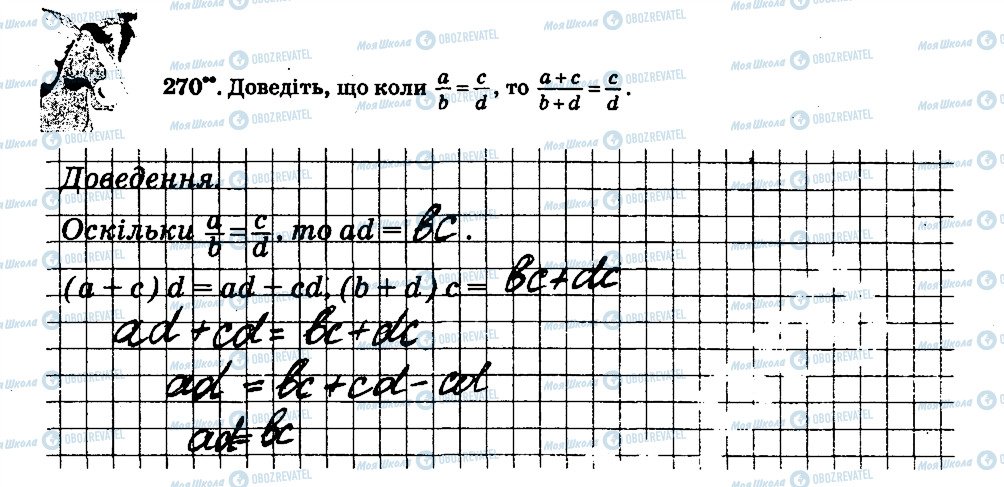 270••. Доведіть, що коли a/b = c/d, то (a + c)/(b + d) = c/d.
Доведення.
Оскільки a/b = c/d, то ad = bc.
(a + c) d = ad + cd, (b + d) c = bc + dc
ad + cd = bc + dc
ad = bc + cd - cd
ad = bc
Моя Школа OBOZREVATEL